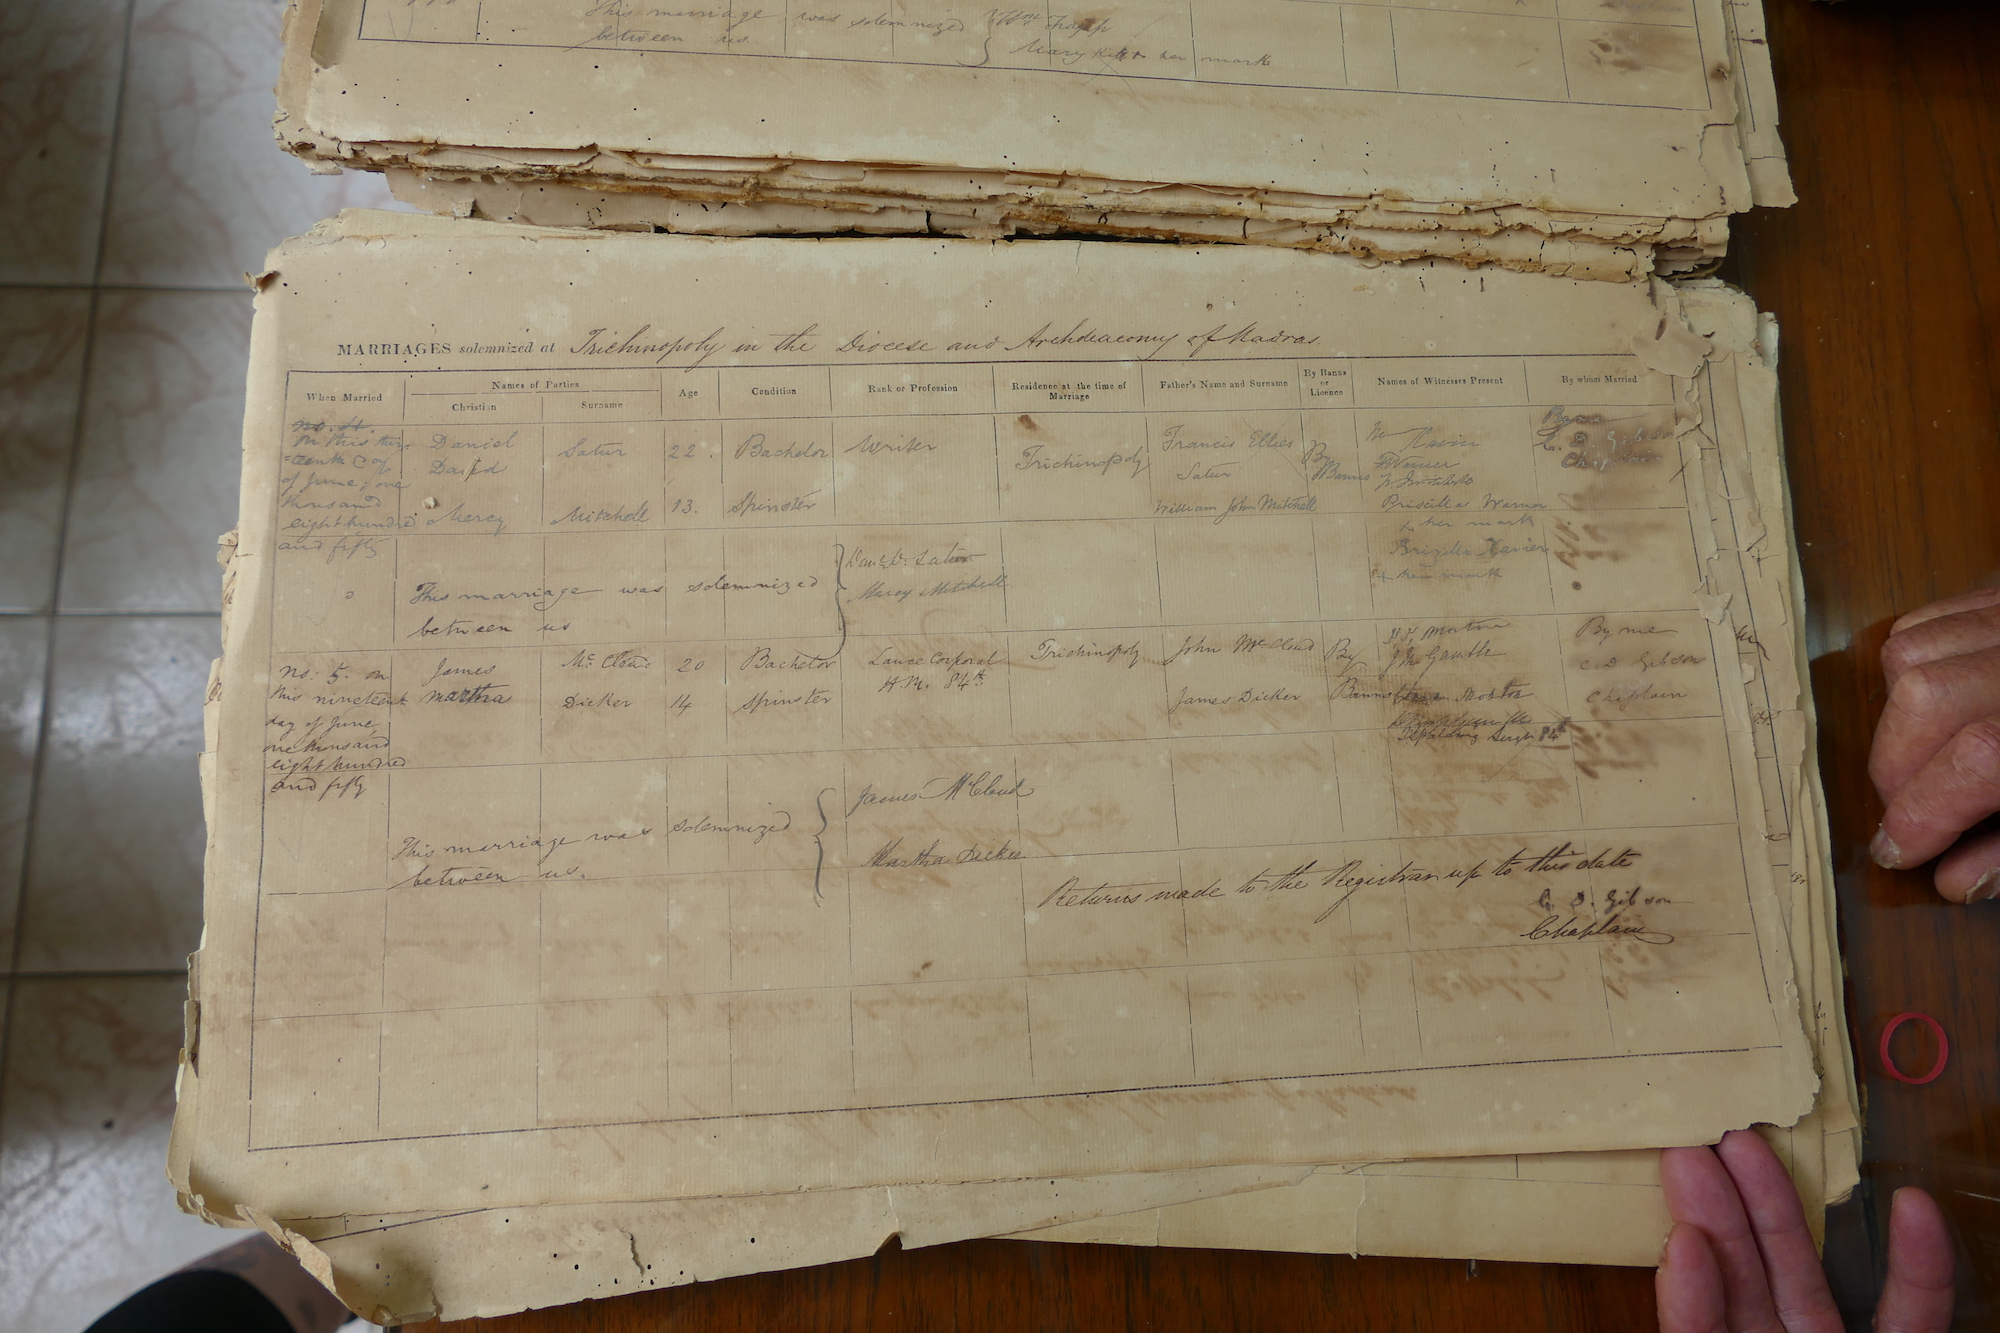 This marriage was solemnized
between us
Mary her mark
MARRIAGES solemnized at Trichinopoly in the Diocese and Archdeaconry of Madras.
When Married
Names of Parties
Christian
Surname
Age
Condition
Rank or Profession
Residence at the time of
Marriage
Father's Name and Surname
By Banns
or
Licence
Names of Witnesses Present
By whom Married
No. 4.
On this
day
of June, one
thousand
eight hundred
and fifty
Daniel
David
Satur
22.
Bachelor
Writer
Trichinopoly
Francis Ellies
Satur
By
Banns
By me
C. D. Gibson
Chaplain
Mercy
Mitchell
13.
Spinster
William John Mitchell
Priscilla Warner
her mark
Xavier
This marriage was solemnized
between us
Satur
Mercy Mitchell
No: 5. on
this nineteenth
day of June
one thousand
eight hundred
and fifty
James
McCloud
20
Bachelor
Lance Corporal
H.M. 84th
Trichinopoly
John McCloud
By
Banns
By me
C D Gibson
Chaplain
Martha
Dicker
14
Spinster
James Dicker
84th
This marriage was solemnized
between us.
James McCloud
Martha Dicker
Returns made to the Registrar up to this date
C. D. Gibson
Chaplain